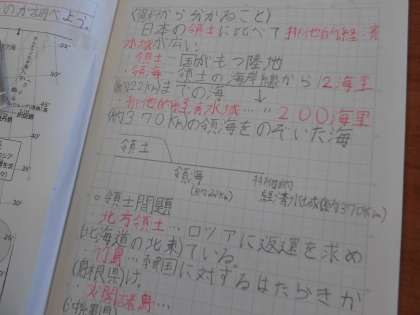 のかを調べよう。
(資料から分かること)
日本の領土に比べて排他的経済
水域が広い
・領土…国がもつ陸地
・領海…領土の海岸線から12海里
(約22km)までの海
・排他的経済水域……200海里
約370kmの領海をのぞいた海
領土
領海
(約22km)
排他的
経済水域(約370km)
・領土問題
北方領土…ロシアに返還を求め
(北海道の北東)ている。
竹島…韓国に対するはたらきか
(島根県)け。
尖閣諸島…
(沖縄県)